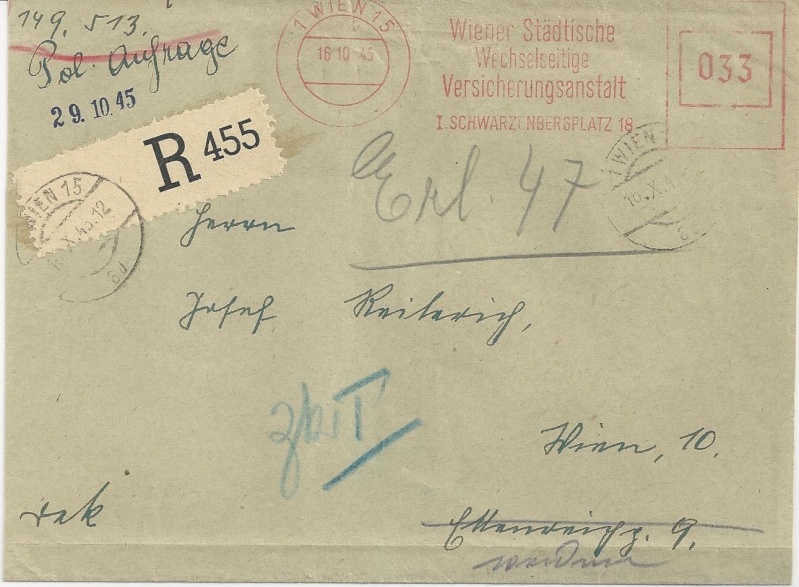 149. 513.
Pol. Anfrage
29. 10. 45
R 455
1 WIEN 15
16 10 45
Wiener Städtische
Wechselseitige
Versicherungsanstalt
I. SCHWARZENBERGPLATZ 18
033
1 WIEN 15
16. X. 45. 12
8d
1 WIEN
16. X. 4
Erl. 47
Herrn
Josef Reiterich,
Wien, 10.
Ettenreichg. 9.
rek